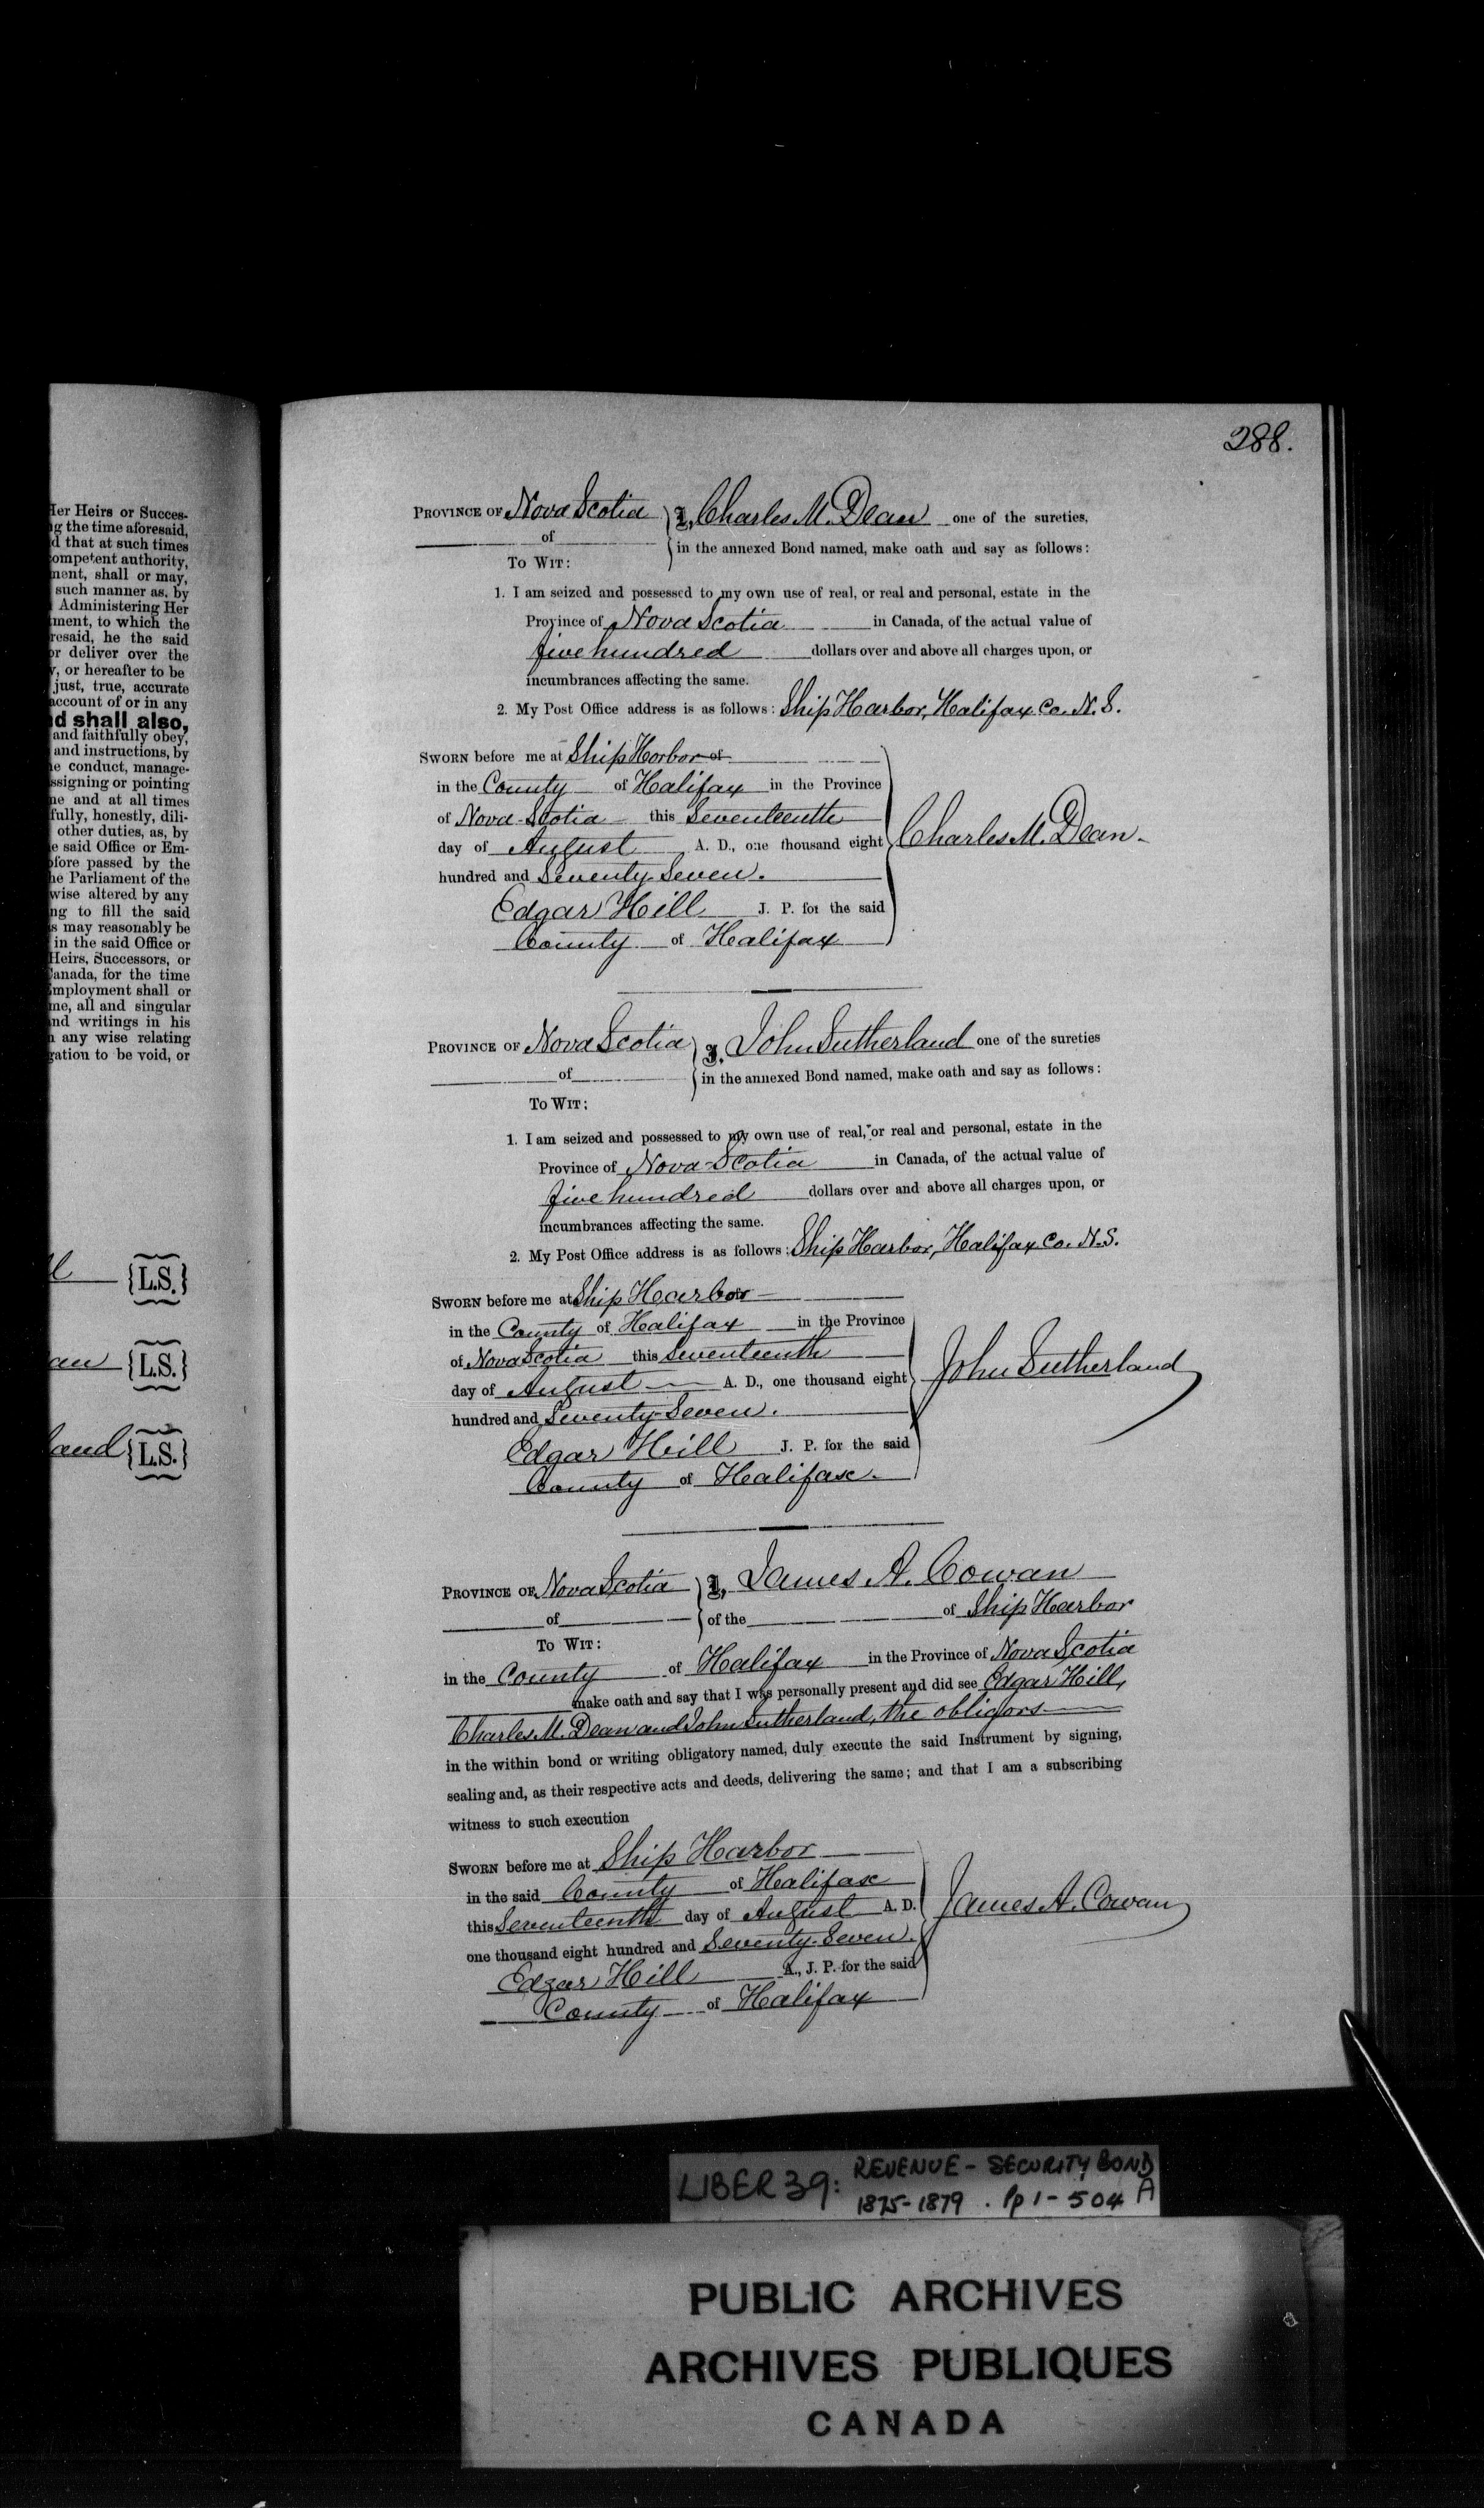 Her Heirs or Succes-
g the time aforesaid,
d that at such times
ompetent authority,
ment, shall or may,
such manner as, by
Administering Her
ment, to which the
resaid, he the said
or deliver over the
y, or hereafter to be
just, true, accurate
account of or in any
d shall also,
and faithfully obey,
and instructions, by
e conduct, manage-
ssigning or pointing
ne and at all times
fully, honestly, dili-
other duties, as, by
e said Office or Em-
ofore passed by the
he Parliament of the
wise altered by any
ng to fill the said
s may reasonably be
in the said Office or
Heirs, Successors, or
Canada, for the time
mployment shall or
me, all and singular
nd writings in his
n any wise relating
gation to be void, or
{L.S.}
an {L.S.}
land {L.S.}
288.
PROVINCE OF Nova Scotia } I, Charles M. Dean one of the sureties,
of { in the annexed Bond named, make oath and say as follows:
TO WIT:
1. I am seized and possessed to my own use of real, or real and personal, estate in the
Province of Nova Scotia in Canada, of the actual value of
five hundred dollars over and above all charges upon, or
incumbrances affecting the same.
2. My Post Office address is as follows: Ship Harbor, Halifax Co. N. S.
SWORN before me at Ship Horbor of
in the County of Halifax in the Province
of Nova-Scotia this Seventeenth
day of August A. D., one thousand eight
hundred and Seventy-Seven.
Charles M. Dean.
Edgar Hill J. P. for the said
County of Halifax
PROVINCE OF Nova Scotia } I, John Sutherland one of the sureties
of { in the annexed Bond named, make oath and say as follows:
TO WIT:
1. I am seized and possessed to my own use of real, or real and personal, estate in the
Province of Nova-Scotia in Canada, of the actual value of
five hundred dollars over and above all charges upon, or
incumbrances affecting the same.
2. My Post Office address is as follows: Ship Harbor, Halifax Co. N.S.
SWORN before me at Ship Harbor
in the County of Halifax in the Province
of Nova Scotia this Seventeenth
day of August A. D., one thousand eight
hundred and Seventy-Seven.
John Sutherland
Edgar Hill J. P. for the said
County of Halifax.
PROVINCE OF Nova Scotia } I, James A. Cowan
of { of the of Ship Harbor
TO WIT:
in the County of Halifax in the Province of Nova Scotia
make oath and say that I was personally present and did see Edgar Hill,
Charles M. Dean and John Sutherland, the obligors
in the within bond or writing obligatory named, duly execute the said Instrument by signing,
sealing and, as their respective acts and deeds, delivering the same; and that I am a subscribing
witness to such execution
SWORN before me at Ship Harbor
in the said County of Halifax
this Seventeenth day of August A. D.
one thousand eight hundred and Seventy-Seven.
James A. Cowan
Edgar Hill A., J. P. for the said
County of Halifax
LIBER 39: REVENUE - SECURITY BOND
1875-1879 . Pp 1-504 A
PUBLIC ARCHIVES
ARCHIVES PUBLIQUES
CANADA